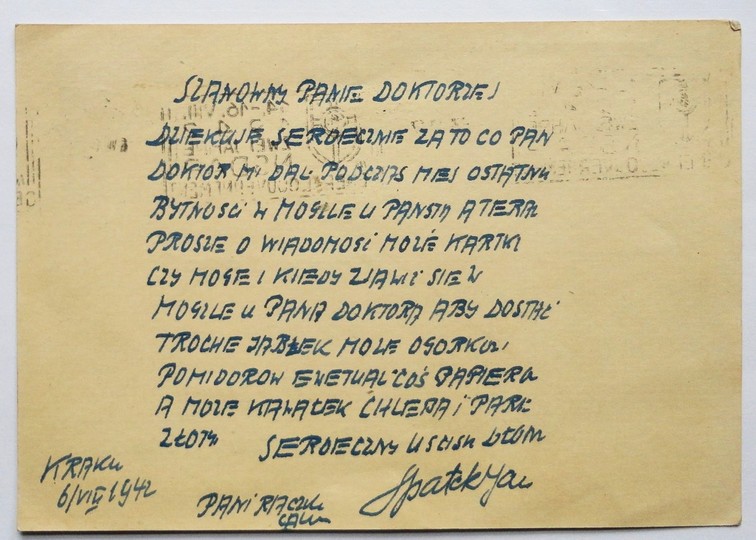 SZANOWNY PANIE DOKTORZE!
DZIEKUJE SERDECZNIE ZA TO CO PAN
DOKTOR MI DAŁ PODCZAS MEJ OSTATNIEJ
BYTNOŚCI W MOGILE U PAŃSTW A TERAZ
PROSZE O WIADOMOŚĆ MOŻE KARTKĄ
CZY MOGE I KIEDY ZJAWIĆ SIE W
MOGILE U PANA DOKTORA ABY DOSTAĆ
TROCHE JABŁEK MOZE OGORKÓW
POMIDOROW EWETUAL COŚ PAPIERU
A MOZE KAWAŁEK CHLEBA I PARE
ZŁOTY SERDECZNY UŚCISK DŁONI
KRAKÓW
6/VIII 1942
PANI RĄCZKI
CAŁUJE